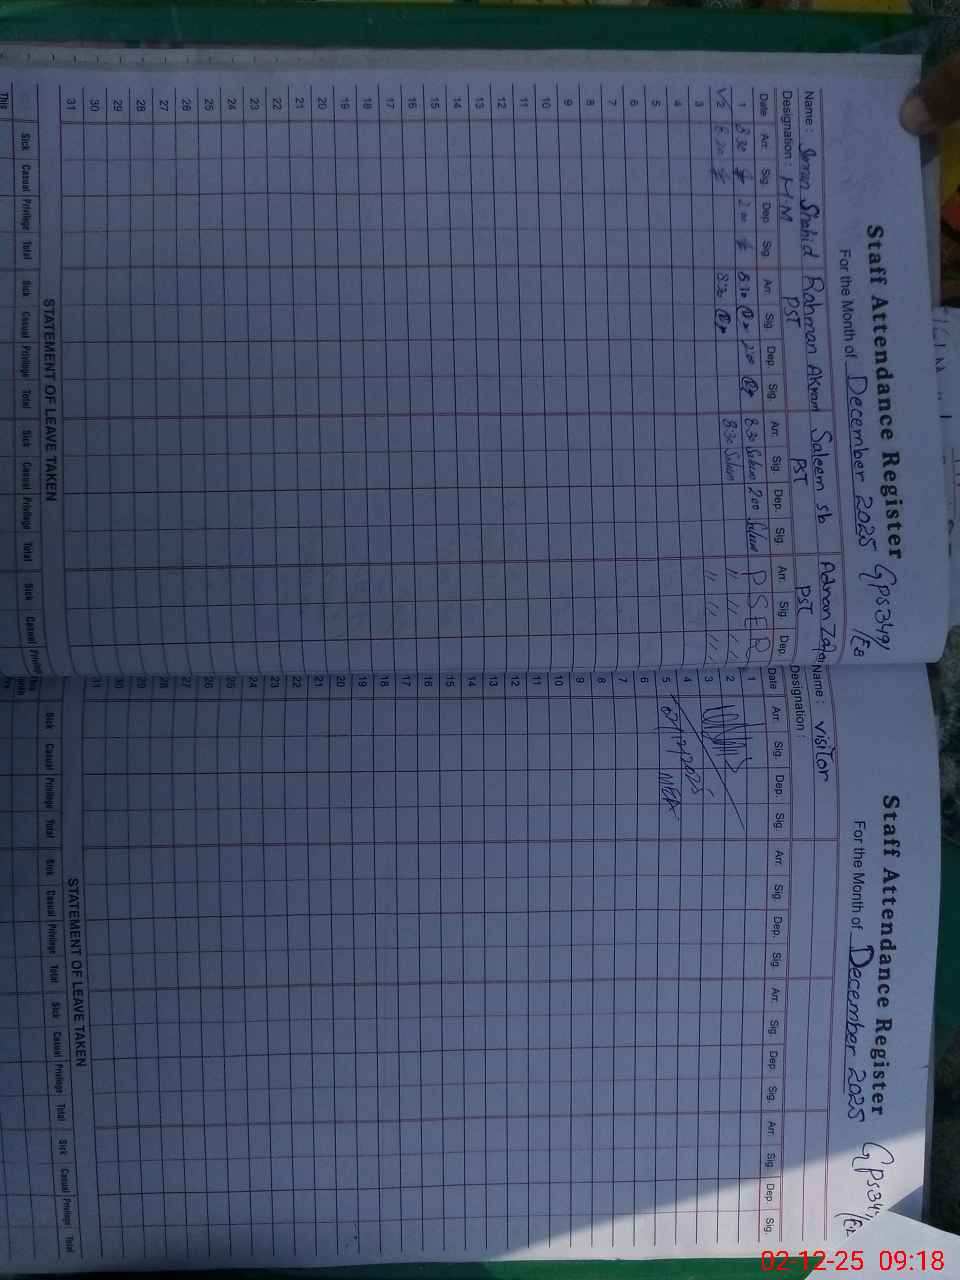 Staff Attendance Register GPS 349/EB
For the Month of December 2025
Name : Imran Shahid Rahman Akram Saleem sb Adnan Zafar
Designation : H.M PST PST PST
Date Arr. Sig. Dep. Sig. Arr. Sig. Dep. Sig. Arr. Sig. Dep. Sig. Arr. Sig. Dep.
1 8:30 2:00 8:30 2:00 8:30 Saleem 2:00 Saleem P S E R
2 8:30 8:30 8:30 Saleem " " "
3 " " "
4
5
6
7
8
9
10
11
12
13
14
15
16
17
18
19
20
21
22
23
24
25
26
27
28
29
30
31
STATEMENT OF LEAVE TAKEN
Sick Casual Privilege Total Sick Casual Privilege Total Sick Casual Privilege Total Sick Casual
This
Staff Attendance Register GPS 349
For the Month of December 2025
Name : Visitor
Designation :
Date Arr. Sig. Dep. Sig. Arr. Sig. Dep. Sig. Arr. Sig. Dep. Sig. Arr. Sig. Dep. Sig.
1
2
3
4
5 02/12/2025 MEA
6
7
8
9
10
11
12
13
14
15
16
17
18
19
20
21
22
23
24
25
26
27
28
29
30
31
STATEMENT OF LEAVE TAKEN
Sick Casual Privilege Total Sick Casual Privilege Total Sick Casual Privilege Total Sick Casual Privilege Total
02-12-25 09:18